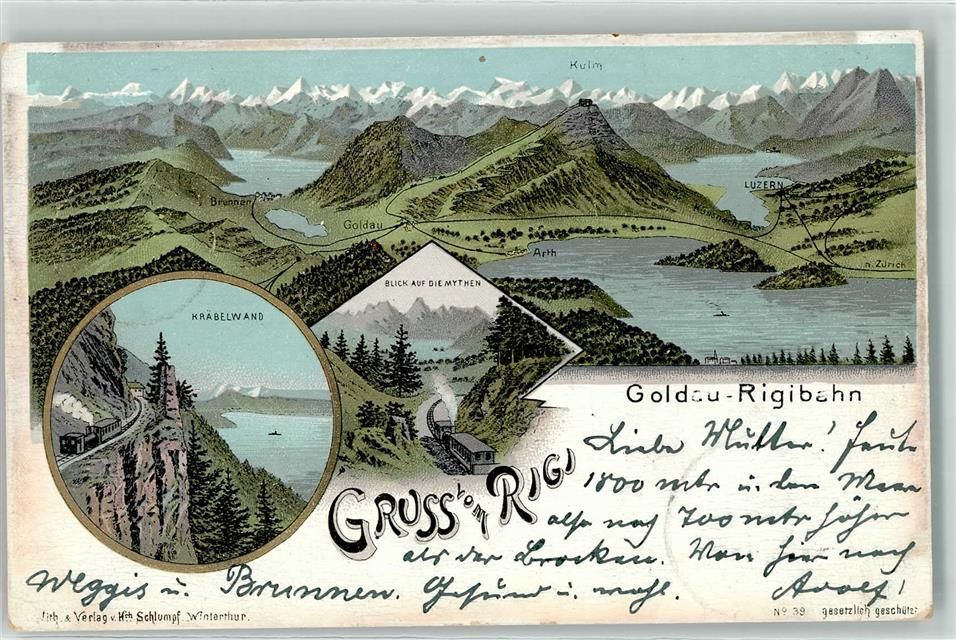 Kulm
LUZERN
Brunnen
Goldau
Arth
n. Zürich
BLICK AUF DIE MYTHEN
KRÄBELWAND
Goldau-Rigibahn
GRUSS vom RIGI
Liebe Mutter! Heute
1800 mtr ü. dem Meer
also noch 700 mtr höher
als der Brocken. Von hier nach
Weggis u. Brunnen. Gesund u. wohl. Adolf!
Lith. & Verlag v. Hch. Schlumpf. Winterthur.
No 39. gesetzlich geschützt